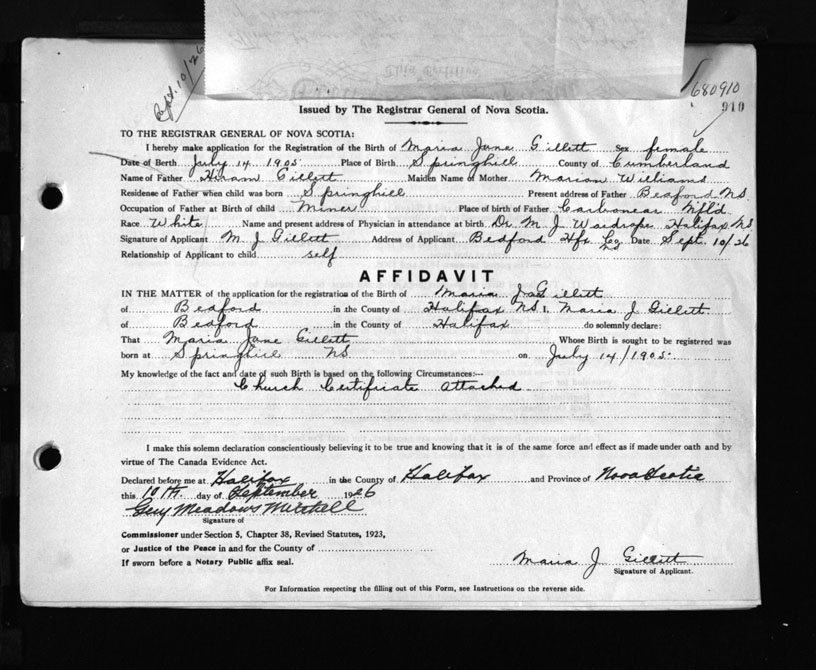 Sept. 10/26
680910
910
Issued by The Registrar General of Nova Scotia.
TO THE REGISTRAR GENERAL OF NOVA SCOTIA:
I hereby make application for the Registration of the Birth of Maria Jane Gillett Sex female
Date of Berth July 14 1905 Place of Birth Springhill County of Cumberland
Name of Father Hiram Gillett Maiden Name of Mother Marion Williams
Residence of Father when child was born Springhill Present address of Father Bedford NS
Occupation of Father at Birth of child Miner Place of birth of Father Carbonear Nfl'd
Race White Name and present address of Physician in attendance at birth Dr. M. J. Wardrope Halifax NS
Signature of Applicant M J Gillett Address of Applicant Bedford Hfx Co NS Date Sept. 10/26
Relationship of Applicant to child self
AFFIDAVIT
IN THE MATTER of the application for the registration of the Birth of Maria J. Gillett
of Bedford in the County of Halifax NS I, Maria J Gillett
of Bedford in the County of Halifax do solemnly declare:
That Maria Jane Gillett Whose Birth is sought to be registered was
born at Springhill NS on July 14/1905
My knowledge of the fact and date of such Birth is based on the following Circumstances:—
Church Certificate attached
I make this solemn declaration conscientiously believing it to be true and knowing that it is of the same force and effect as if made under oath and by
virtue of The Canada Evidence Act.
Declared before me at Halifax in the County of Halifax and Province of Nova Scotia
this 10th day of September 1926
Guy Meadows Mitchell
Signature of
Commissioner under Section 5, Chapter 38, Revised Statutes, 1923,
or Justice of the Peace in and for the County of
If sworn before a Notary Public affix seal.
Maria J Gillett
Signature of Applicant.
For Information respecting the filling out of this Form, see Instructions on the reverse side.